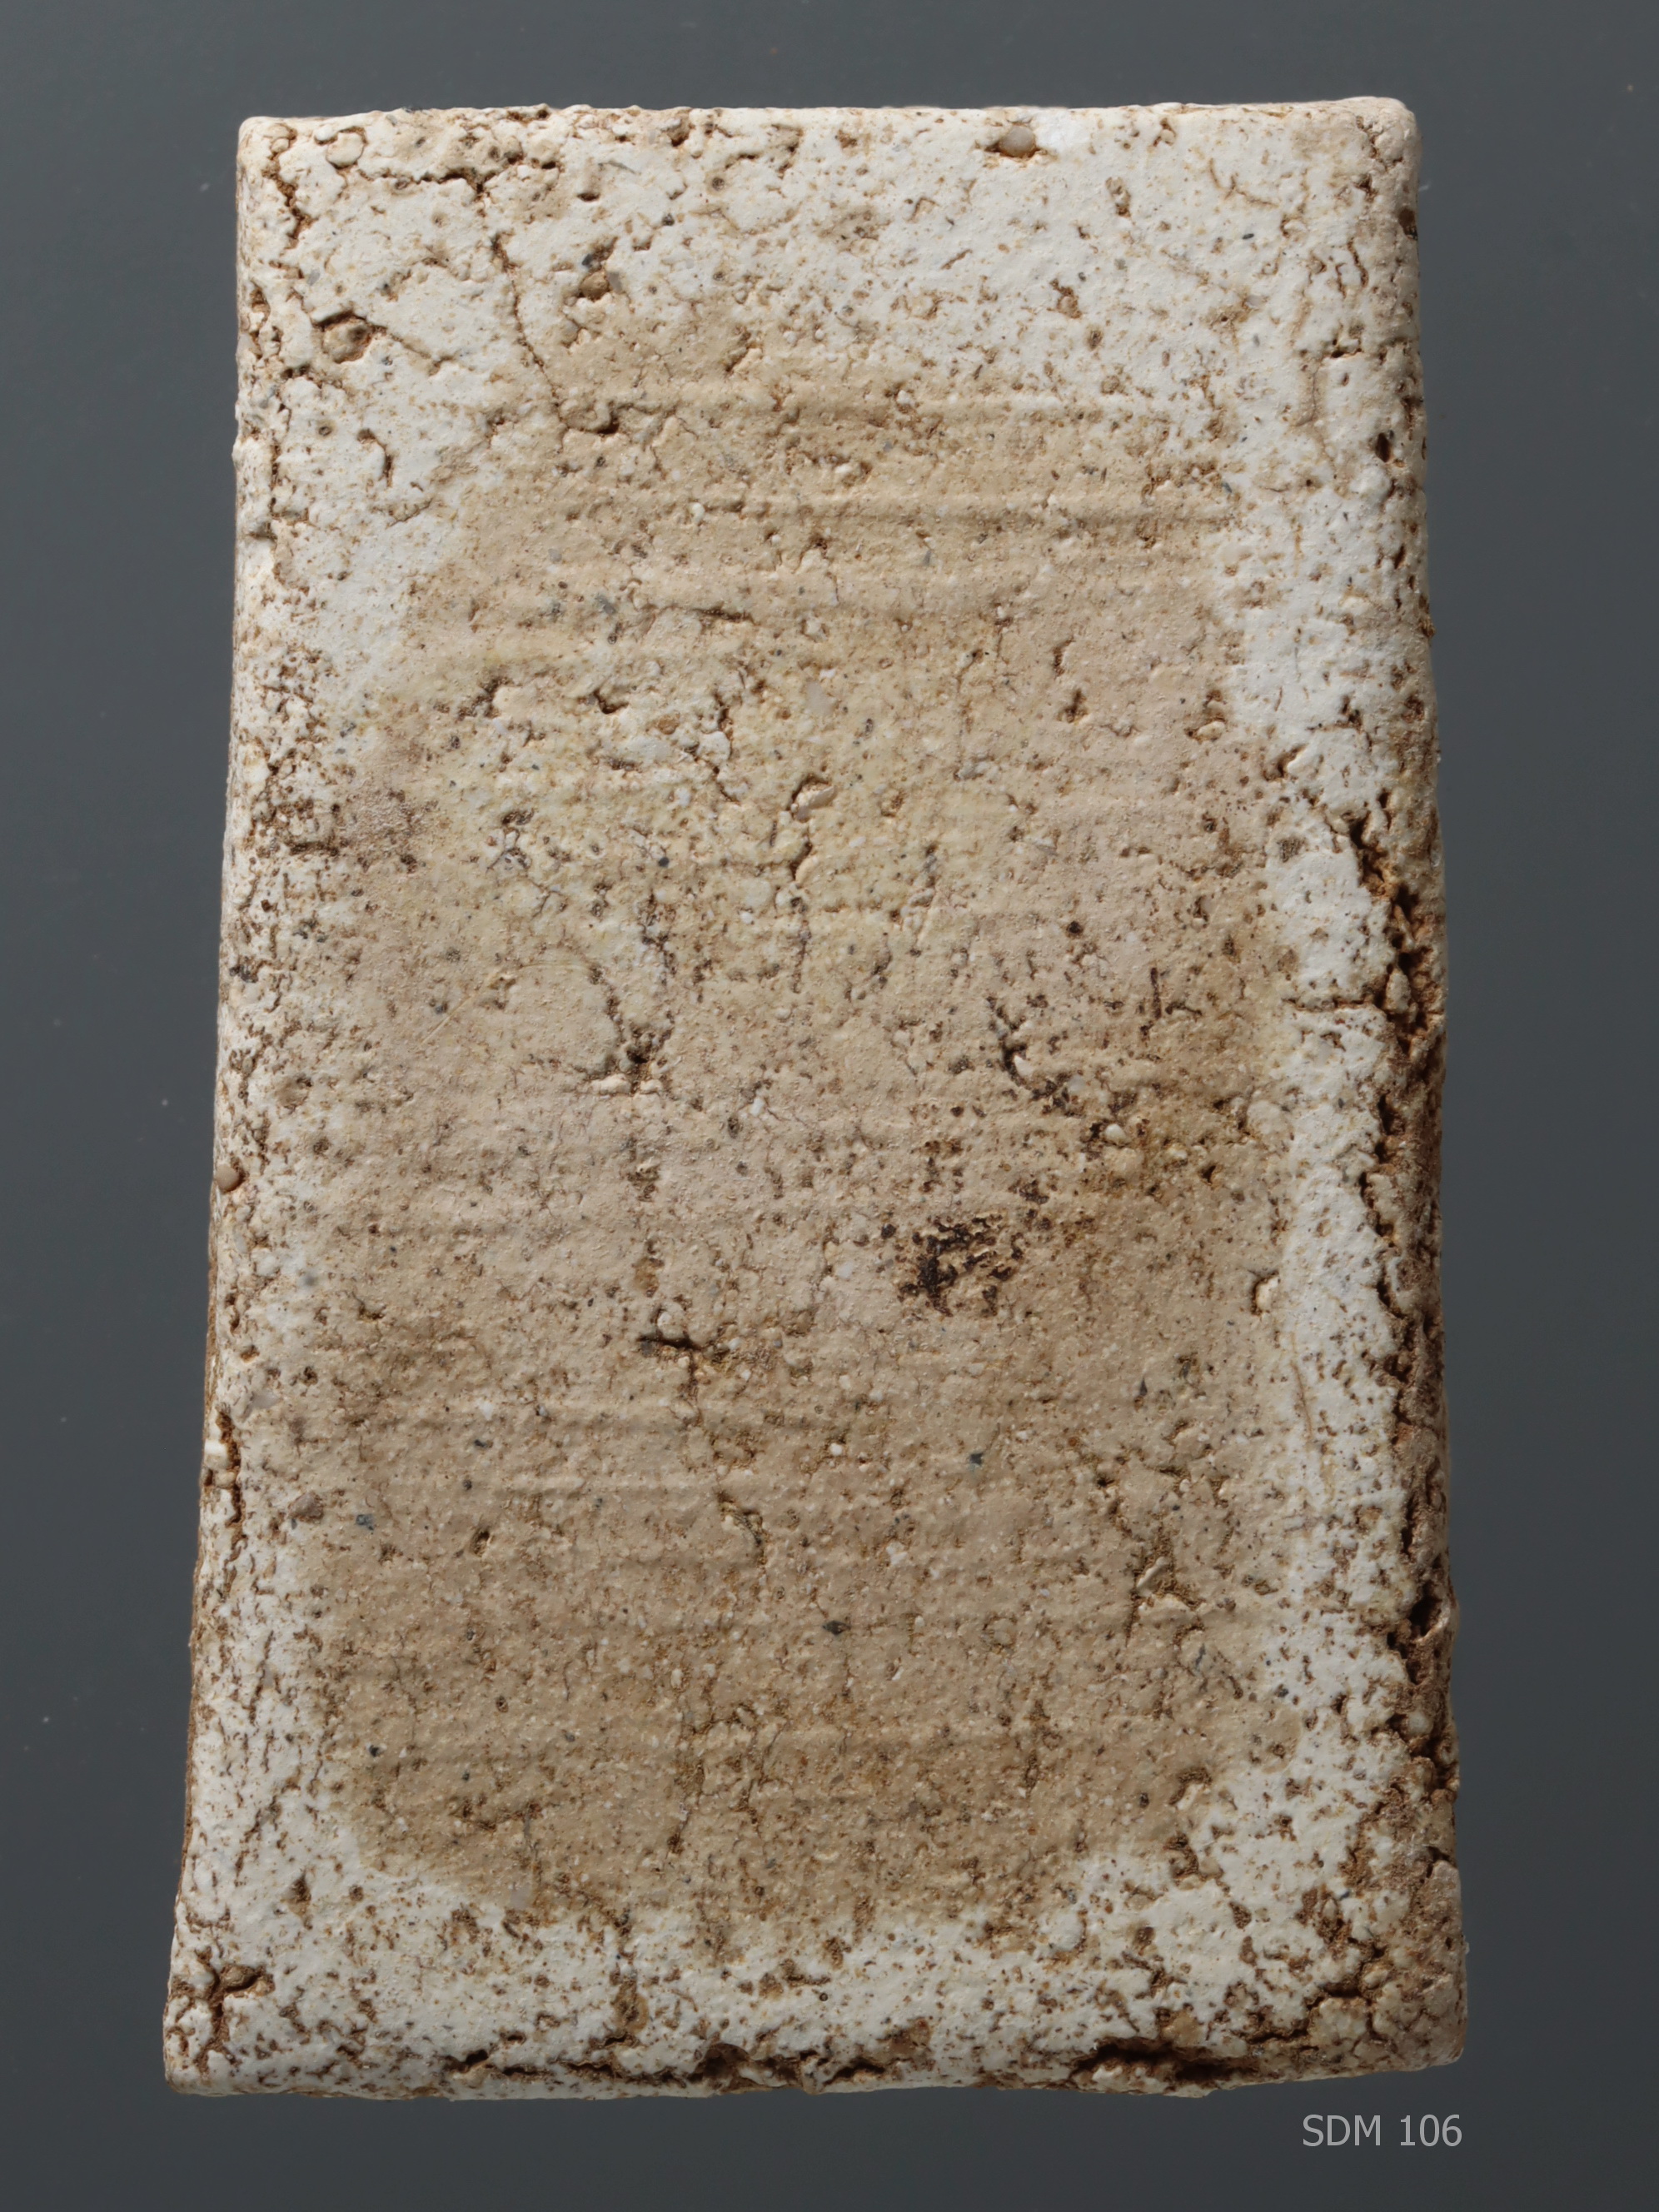 SDM 106